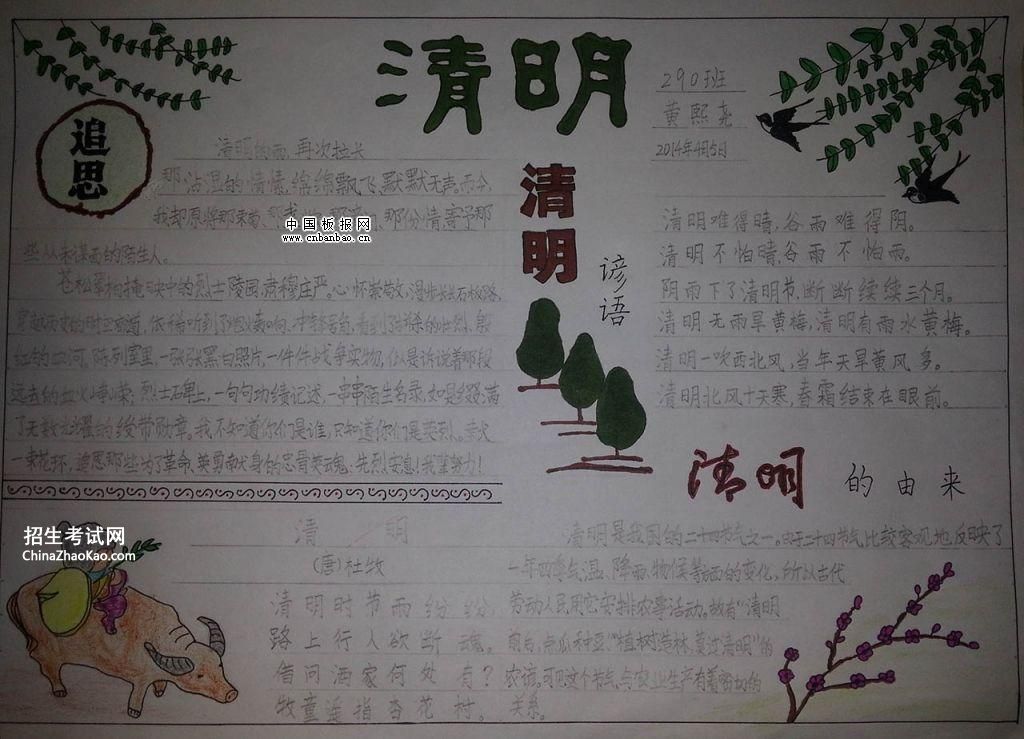 清明
290班
黄熙尧
2014年4月5日
追思
清明的雨,再次拉长
那沾湿的情愫,缤绵飘飞,默默无声。而今,
我却原将那束菊、那份情寄予那
中国板报网
www.cnbanbao.cn
些从未谋面的陌生人。
苍松翠柏掩映中的烈士陵园,肃穆庄严。心怀崇敬,漫步长长石板路,
红的血河。陈列室里,一张张黑白照片,一件件战争实物,似是诉说着那段
远去的血火峥嵘;烈士石碑上,一句句功绩记述,一串串陌生名录,如是缀满
了无数光耀的绶带勋章。我不知道你们是谁,只知道你们是英烈。献
一束花环,追思那些为了革命英勇献身的忠骨英魂。先烈安息!我辈努力!
清明
谚语
清明难得晴,谷雨难得阴。
清明不怕晴,谷雨不怕雨。
阴雨下了清明节,断断续续三个月。
清明无雨旱黄梅,清明有雨水黄梅。
清明一吹西北风,当年天旱黄风多。
清明北风十天寒,春霜结束在眼前。
清明的由来
清明是我国的二十四节气之一。由于二十四节气比较客观地反映了
一年四季气温、降雨、物候等方面的变化,所以古代
劳动人民用它安排农事活动。故有“清明
前后,点瓜种豆”“植树造林,莫过清明”的
农谚。可见这个节气与农业生产有着密切的
关系。
清明
(唐)杜牧
清明时节雨纷纷,
路上行人欲断魂。
借问酒家何处有?
牧童遥指杏花村。
招生考试网
ChinaZhaoKao.com